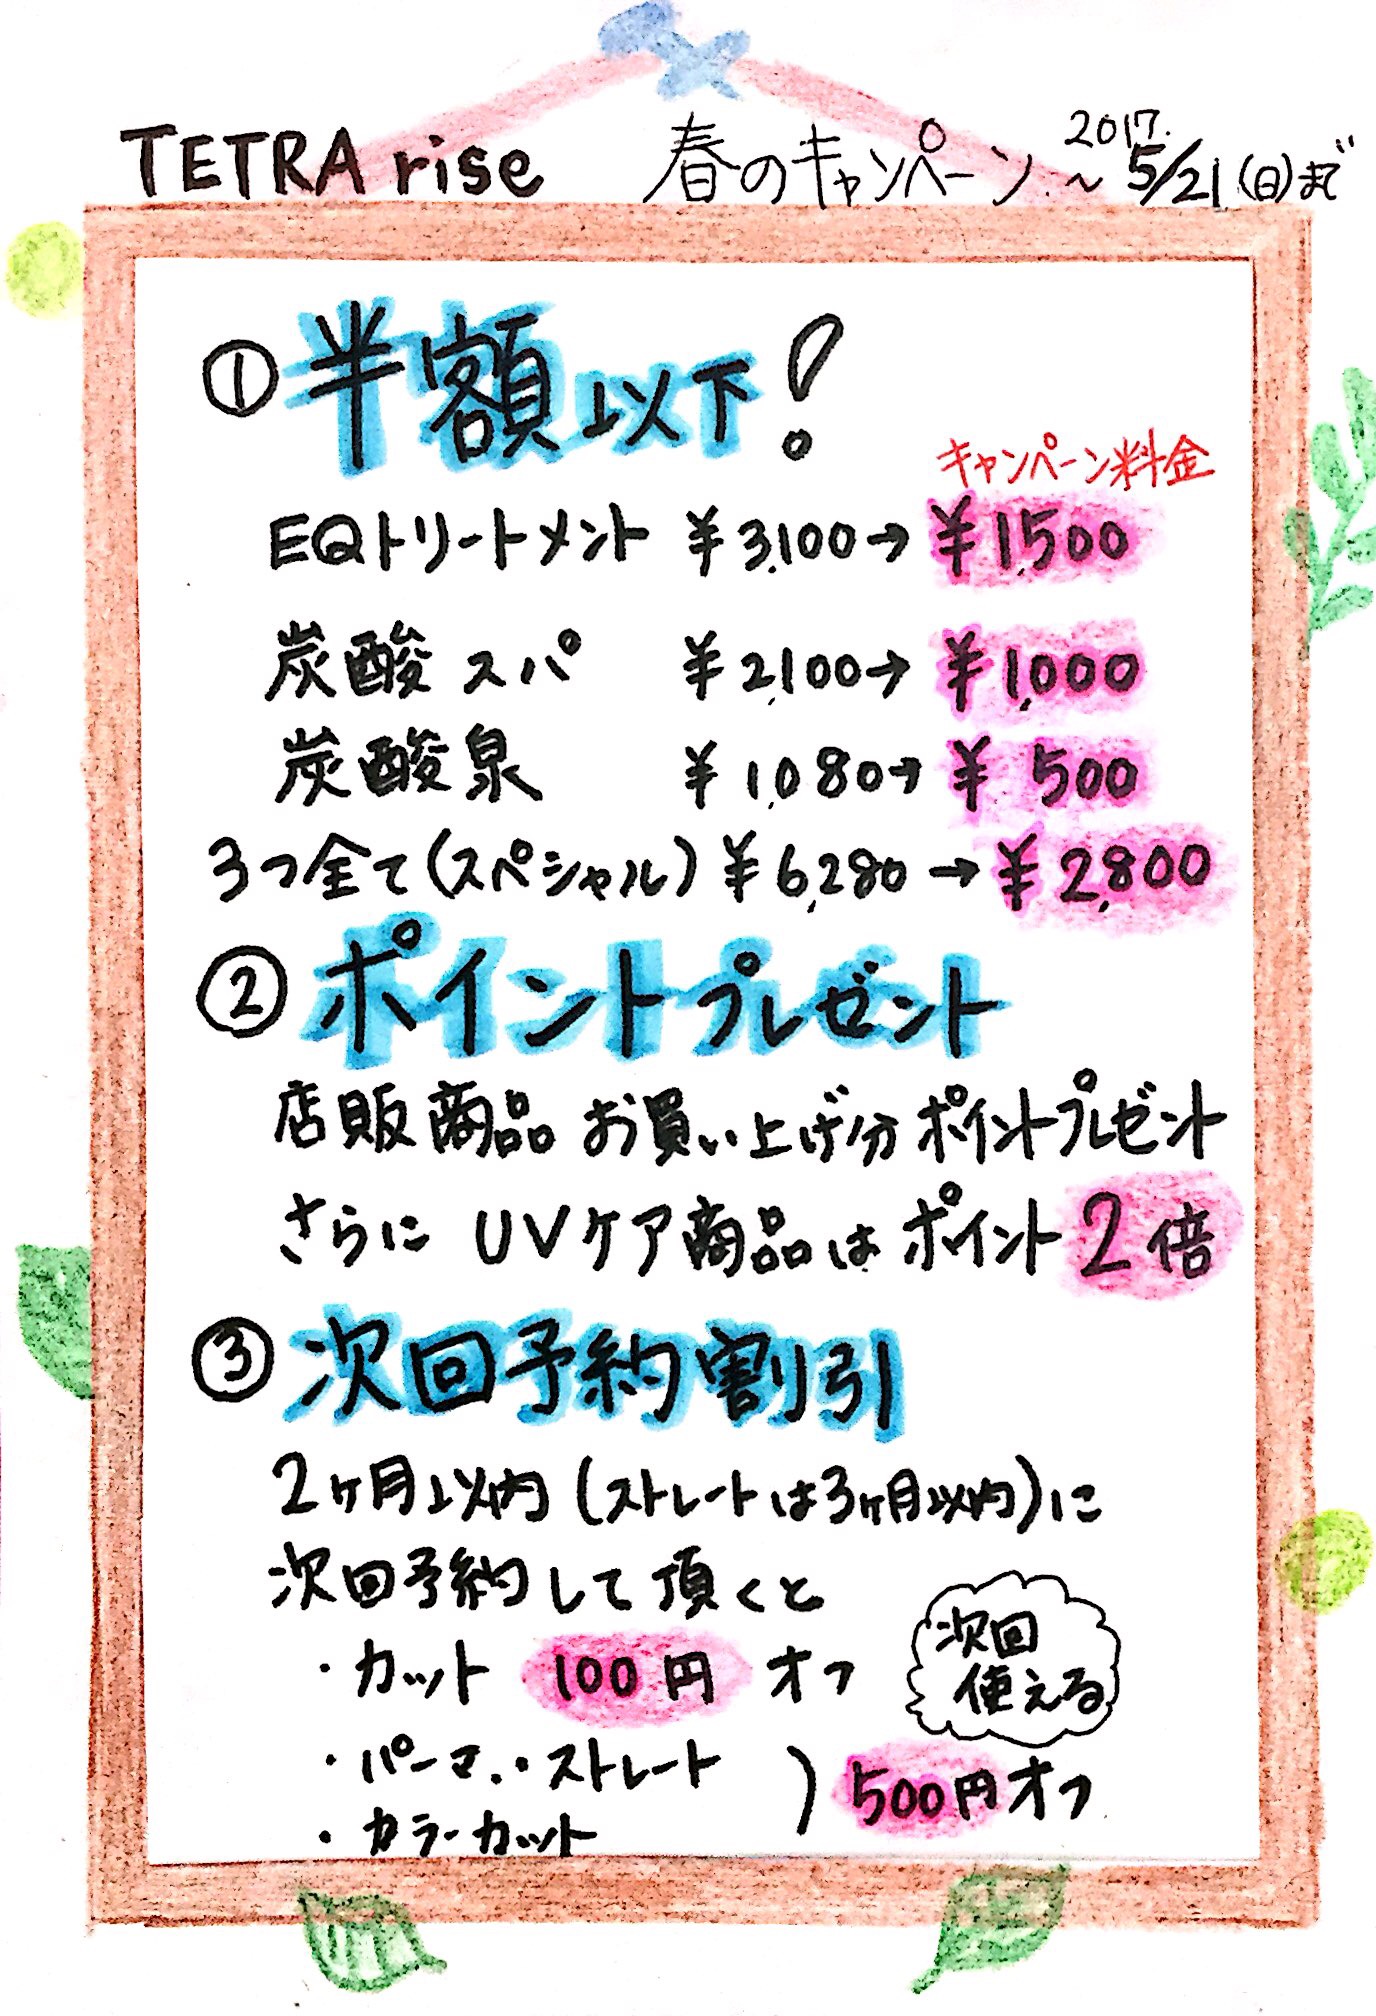 TETRA rise 春のキャンペーン 2017. ~5/21(日)まで
① 半額以下!
キャンペーン料金
EQトリートメント ¥3,100→¥1,500
炭酸スパ ¥2,100→¥1,000
炭酸泉 ¥1,080→¥500
3つ全て(スペシャル)¥6,280→¥2,800
② ポイントプレゼント
店販商品 お買い上げ分ポイントプレゼント
さらに UVケア商品はポイント2倍
③ 次回予約割引
2ヶ月以内(ストレートは3ヶ月以内)に
次回予約して頂くと
・カット 100円 オフ
次回
使える
・パーマ・・ストレート
・カラーカット
) 500円オフ